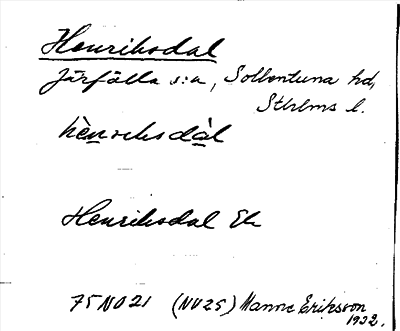 Henriksdal
Järfälla s:n, Sollentuna hd,
Sthlms l.
hènriksdàl
Henriksdal Ek
75 NO 21 (NV 25) Manne Eriksson
1932.